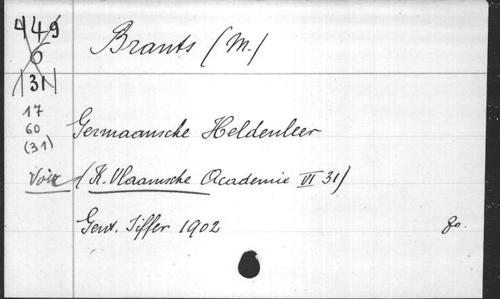 449
6
31
Brants (M.)
17
60
(31)
Germaansche Heldenleer
Voir (K. Vlaamsche Academie VI 31)
Gent. Siffer 1902
8o.